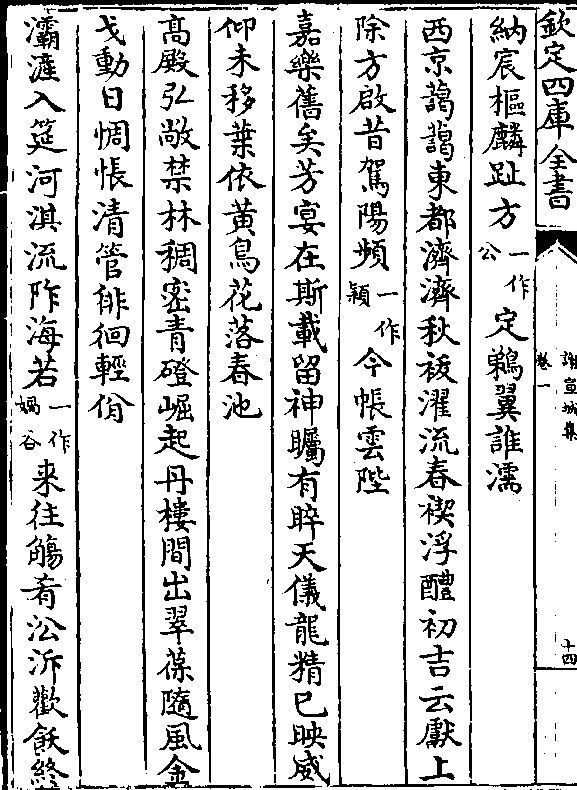 欽定四庫全書
謝宣城集
卷一
十四
納宸樞麟趾方一作公定鵜翼誰濡
西京藹藹東都濟濟秋袚濯流春禊浮醴初吉云獻上
除方啟昔駕陽頻一作潁今帳雲陛
嘉樂舊矣芳宴在斯載留神矚有睟天儀龍精已映威
仰未移葉依黃鳥花落春池
髙殿弘敞禁林稠密青磴崛起丹樓間出翠葆隨風金
戈動日惆悵清管徘徊輕佾
灞滻入筵河淇流阼海若一作嵎谷来往觴肴沿泝歡飫終